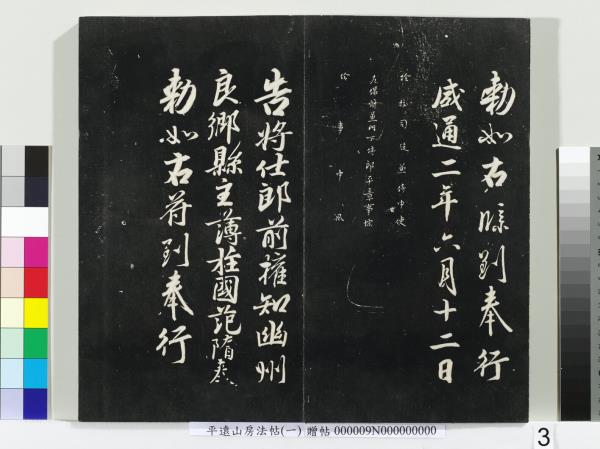 勅如右牒到奉行
咸通二年六月十二日
檢校司徒兼侍中使
左僕射兼門下侍郎平章事悰
給事中
告將仕郎前權知幽州
良鄉縣主薄柱國范隋奉
勅如右符到奉行
平遠山房法帖(一) 贈帖 000009N000000000
3